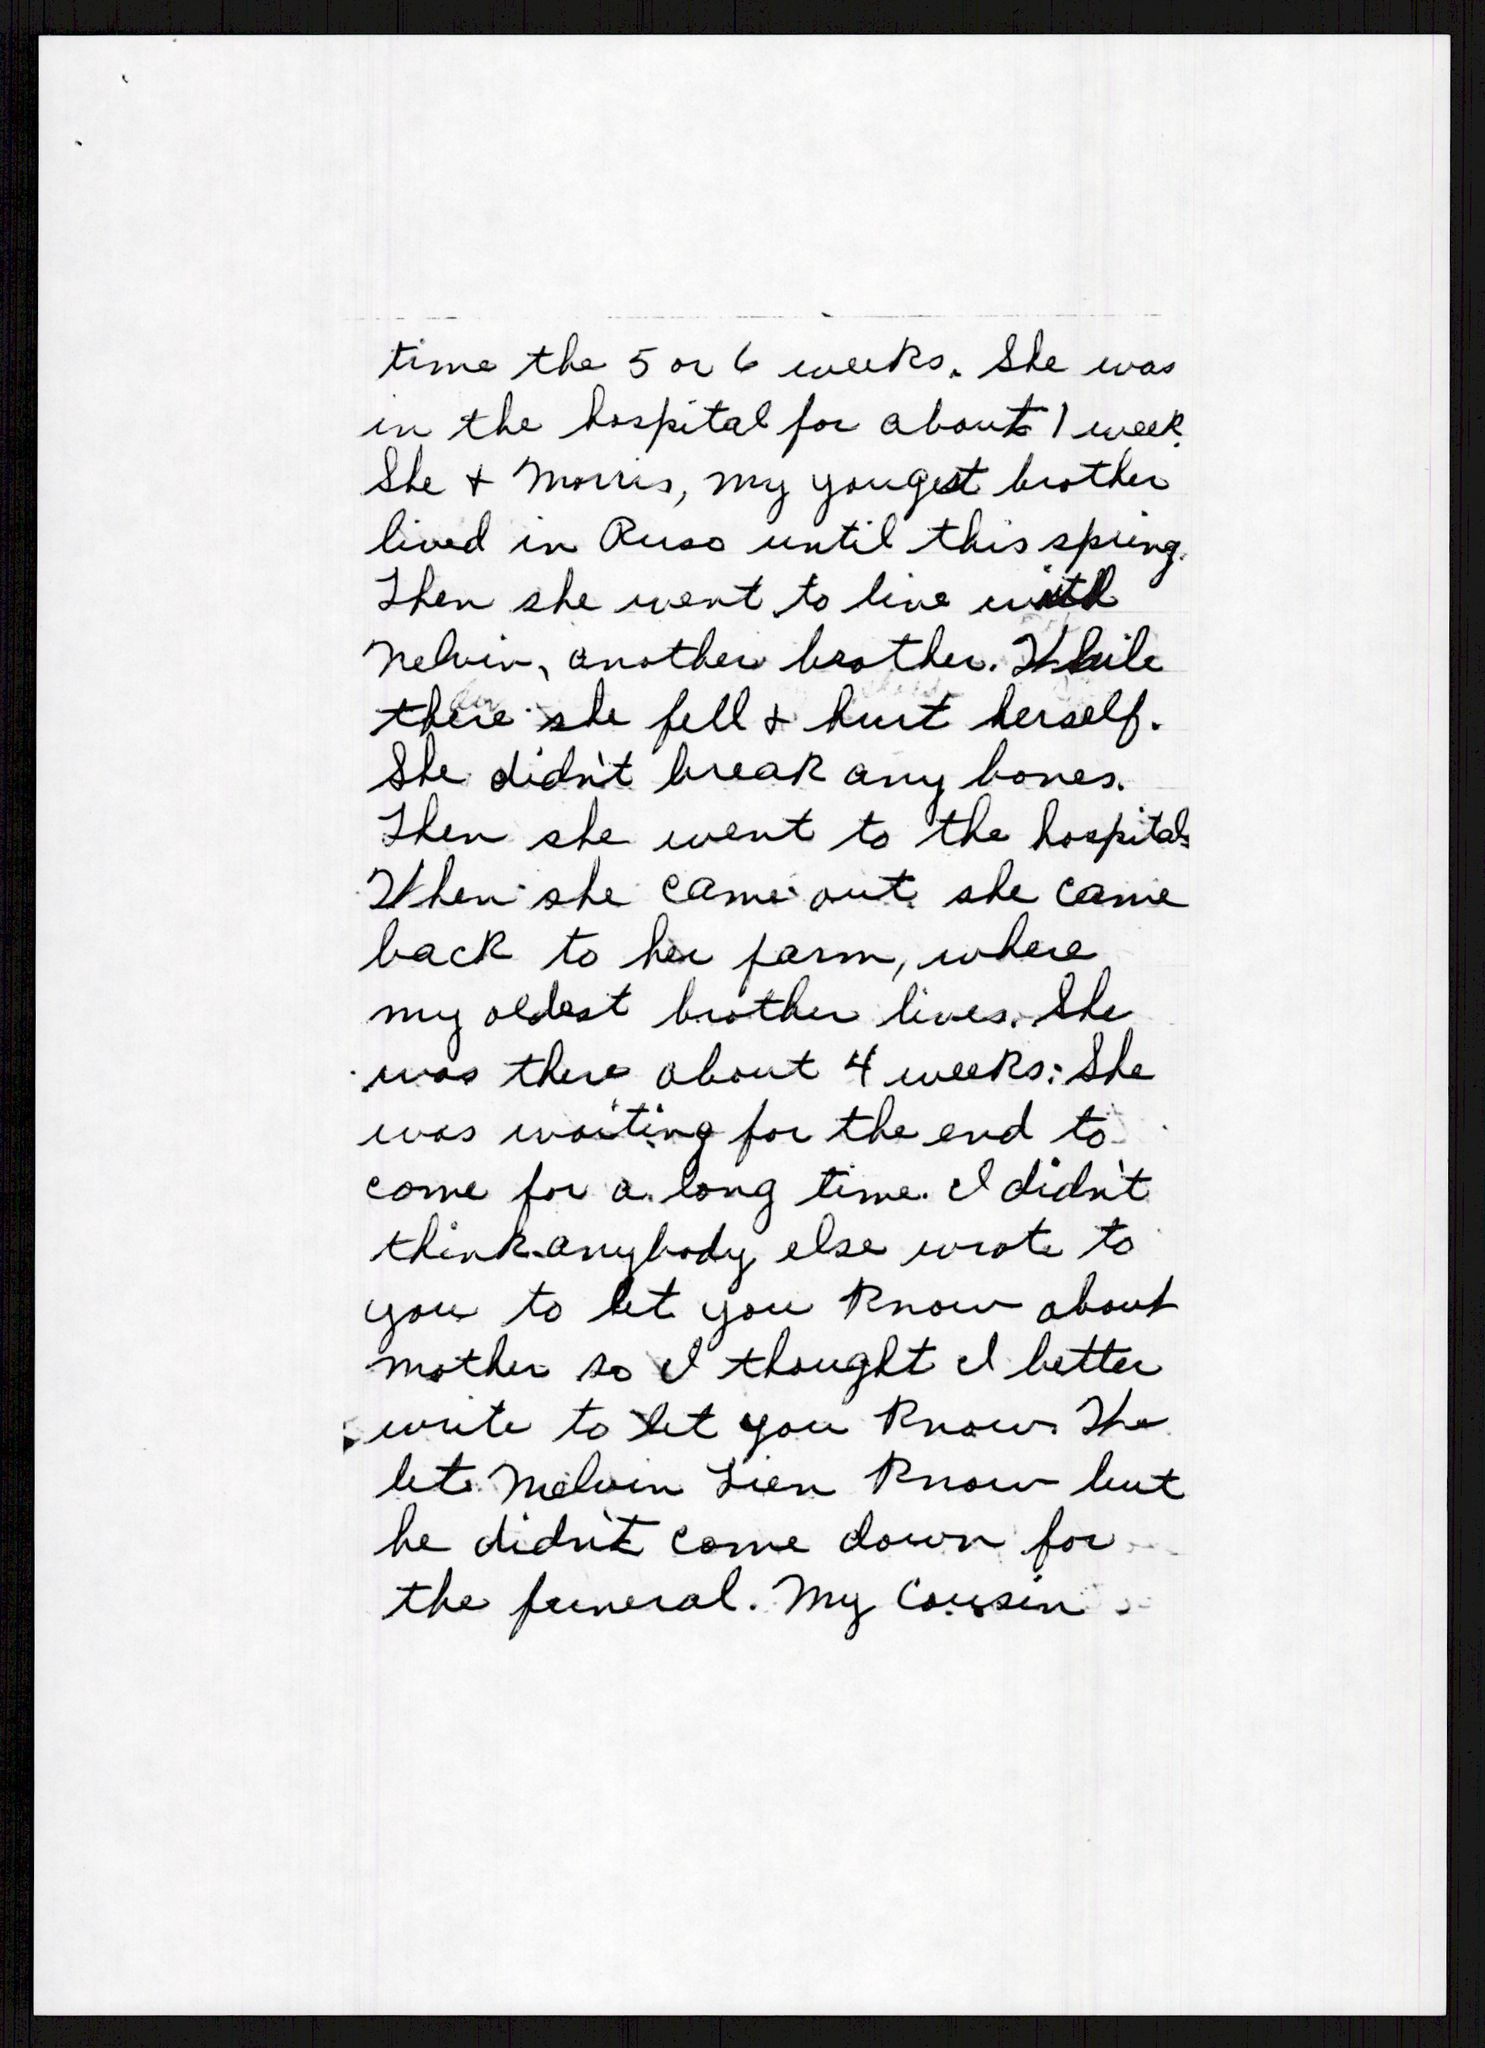 time the 5 or 6 weeks. She was
in the hospital for about 1 week.
She & Morris, my yougest brother
lived in Ruso until this spring.
Then she went to live with
Nelvin, another brother. While
there she fell & hurt herself.
She didn't break any bones.
Then she went to the hospital.
When she came out she came
back to her farm, where
my oldest brother lives. She
was there about 4 weeks. She
was waiting for the end to
come for a long time. I didn't
think anybody else wrote to
you to let you know about
mother so I thought I better
write to let you know. We
let Melvin Lien know but
he didn't come down for
the funeral. My cousin